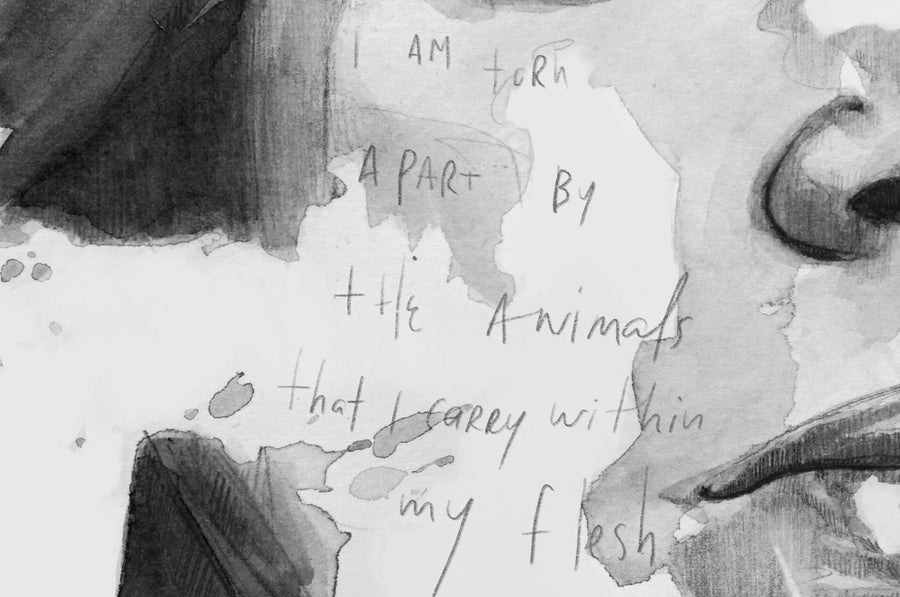 I AM toRn
APARt By
tHE ANimals
that I caRRy within
my flesh